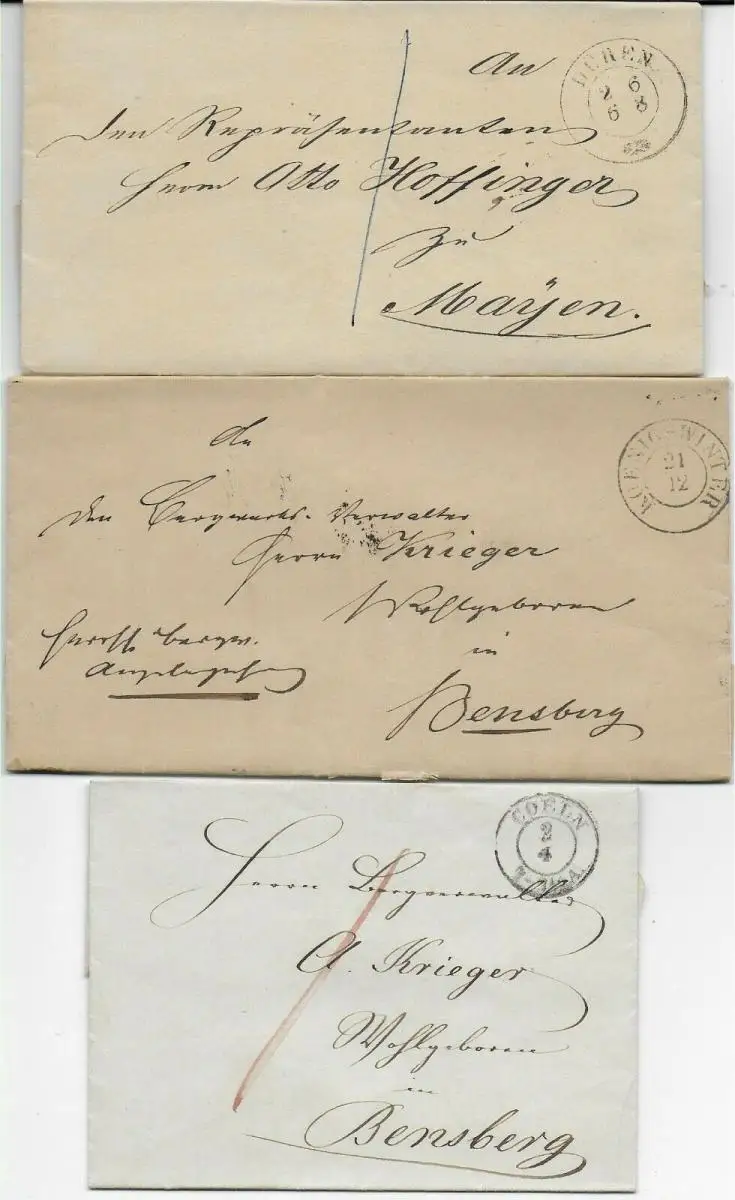 An
DÜREN
2 6
6 8
den Repräsentanten
Herrn Otto Hoffinger
zu
Mayen.
An
KOENIGSWINTER
21
12
den Bergwerks-Verwalter
Herrn Krieger
Wohlgeboren
in
Bensberg
bergw.
Angelegenheit
COELN
2
4
Herrn Bergverwalter
A. Krieger
Wohlgeboren
in
Bensberg